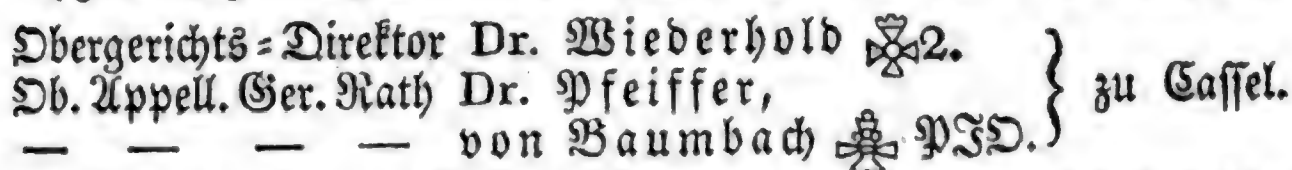 Obergerichts=Direktor Dr. Wiederhold 2.
Ob. Appell. Ger. Rath Dr. Pfeiffer,
— — — — von Baumbach PJO.
zu Cassel.